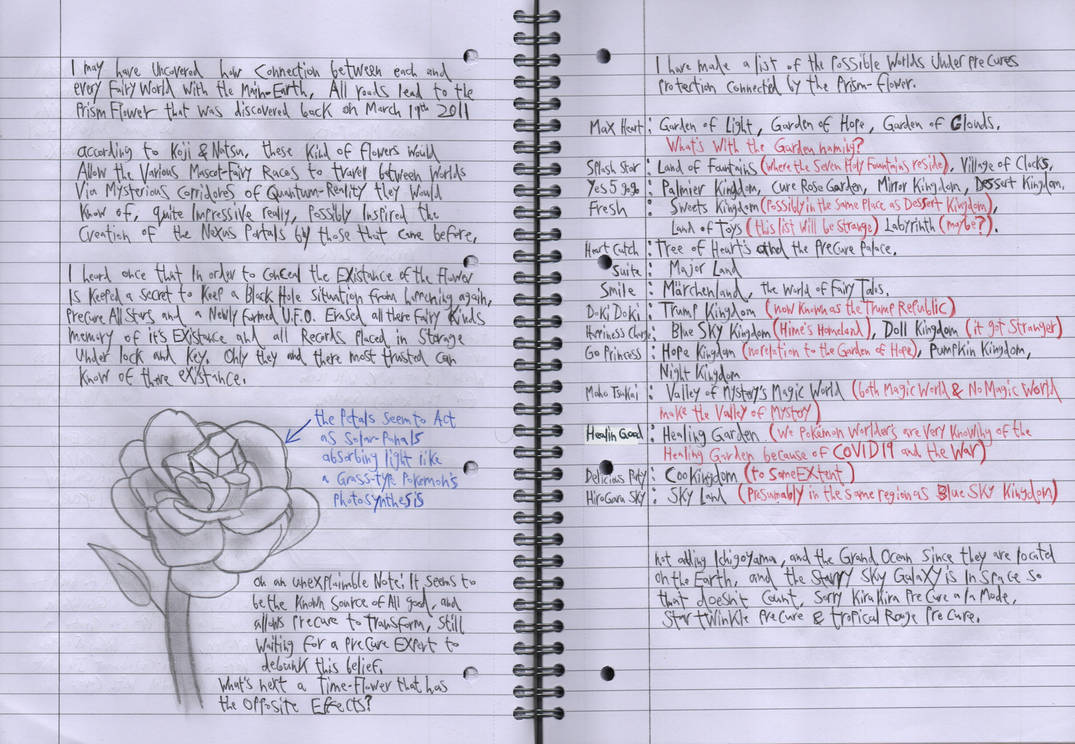 I may have Uncovered how Connection between each and
every Fairy World with the Main-Earth, All roads lead to the
Prism Flower that was discovered back on March 19th 2011
according to Koji & Natsu, these kind of flowers would
Allow the Various Mascot-Fairy Races to travel between Worlds
Via Mysterious Corridores of Quantum-Reality they Would
Know of, quite Impressive really, Possibly Inspired the
Creation of the Nexus Portals by those that came before.
I heard once that In order to Conceal the EXistance of the Flower
Is Keeped a secret to Keep a Black Hole situation from happening again,
Precure All Stars and a Newly formed U.F.O. Erased all there Fairy Kinds
memory of it's EXistence and all Records Placed in Storage
Under lock and Key. Only they and there most trusted can
Know of there eXistance.
the Petals seem to Act
as Solar-Panals
absorbing light like
a Grass-type Pokemon's
Photosynthesis
on an unexplaimble Note: It seems to
be the Known Source of All good, and
allows Precure to transform, Still
Waiting for a Precure Expert to
debunk this belief.
What's next a Time-Flower that has
the Opposite Effects?
I have made a list of the Possible Worlds Under Precures
Protection connected by the Prism-Flower.
Max Heart: Garden of Light, Garden of Hope, Garden of Clouds.
What's With the Garden naming?
Splash Star: Land of Fountains (where the Seven Holy Fountains reside), Village of Clocks,
Yes 5 gogo: Palmier Kingdom, Cure Rose Garden, Mirror Kingdom, Dessert Kingdom,
Fresh: Sweets Kingdom (Possibly in the Same Place as Dessert Kingdom),
Land of Toys (this list will be strange) Labyrinth (maybe?).
Heart Catch: Tree of Heart's and the Precure Palace.
Suite: Major Land
Smile: Märchenland, the World of Fairy Tales.
DoKi DoKi: Trump Kingdom (now Known as the Trump Republic)
Happiness Charge: Blue Sky Kingdom (Hime's Homeland), Doll Kingdom (it got Stranger)
Go Princess: Hope Kingdom (no relation to the Garden of Hope), Pumpkin Kingdom,
Night Kingdom
Maho Tsukai: Valley of Mystory's Magic World (both Magic World & No Magic World
make the Valley of Mystory)
Healin Good: Healing Garden (We Pokémon Worlders are Very Knowihg of the
Healing Garden because of COVID19 and the War)
Delicious Party: Cookingdom (to some EXtent)
HiroGara Sky: Sky Land (Presumably in the same region as Blue Sky Kingdom)
not adding Ichigoyama, and the Grand Ocean Since they are located
on the Earth, and the Starry Sky Galaxy is In Space so
that doesn't Count, Sorry Kira Kira PreCure a la Mode,
Star twinkle PreCure & tropical Rouge PreCure.